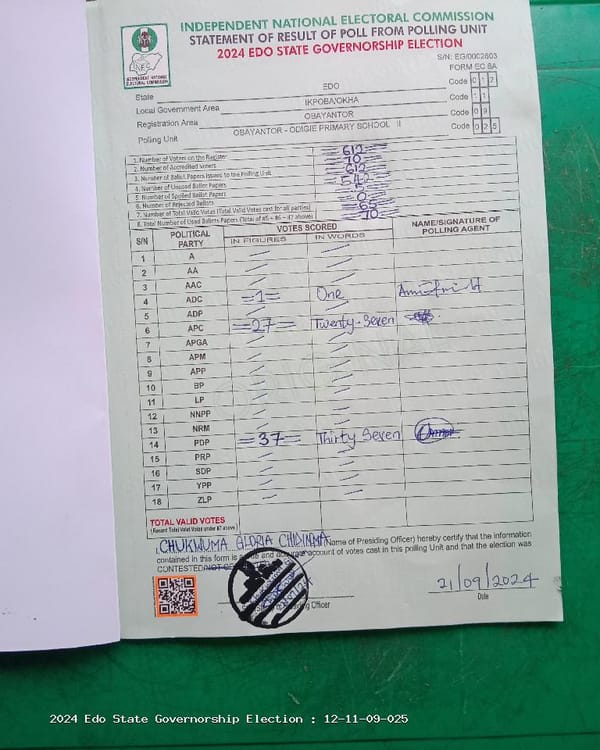 INDEPENDENT NATIONAL ELECTORAL COMMISSION
STATEMENT OF RESULT OF POLL FROM POLLING UNIT
2024 EDO STATE GOVERNORSHIP ELECTION
S/N: EG/0002803
FORM EC 8A
INDEPENDENT NATIONAL ELECTORAL COMMISSION
State EDO Code 012
Local Government Area IKPOBA/OKHA Code 11
Registration Area OBAYANTOR Code 09
Polling Unit OBAYANTOR - ODIGIE PRIMARY SCHOOL II Code 025
1. Number of Voters on the Register 612
2. Number of Accredited Voters 70
3. Number of Ballot Papers Issued to the Polling Unit 612
4. Number of Unused Ballot Papers 542
5. Number of Spoiled Ballot Papers
6. Number of Rejected Ballots
7. Number of Total Valid Votes (Total Valid Votes cast for all parties) 65
8. Total Number of Used Ballots Papers (Total of #5 + #6 + #7 above) 70
S/N POLITICAL PARTY VOTES SCORED NAME/SIGNATURE OF POLLING AGENT
IN FIGURES IN WORDS
1 A
2 AA
3 AAC
4 ADC =1= One
5 ADP
6 APC =27= Twenty-Seven
7 APGA
8 APM
9 APP
10 BP
11 LP
12 NNPP
13 NRM
14 PDP =37= Thirty Seven
15 PRP
16 SDP
17 YPP
18 ZLP
TOTAL VALID VOTES
I, CHUKWUMA GLORIA CHIDINMA (Name of Presiding Officer) hereby certify that the information
contained in this form is a true and accurate account of votes cast in this polling Unit and that the election was
CONTESTED/NOT
21/09/2024
Date
2024 Edo State Governorship Election : 12-11-09-025